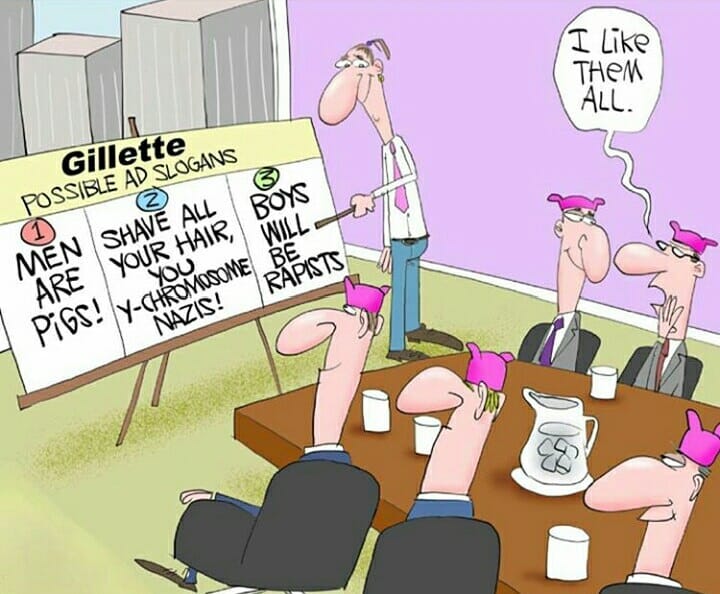 Gillette
POSSIBLE AD SLOGANS
1
MEN
ARE
PiGS!
2
SHAVE ALL
YOUR HAIR,
YOU
Y-CHROMOSOME
NAZIS!
3
BOYS
WILL
BE
RAPISTS
I LiKe
THEM
ALL.